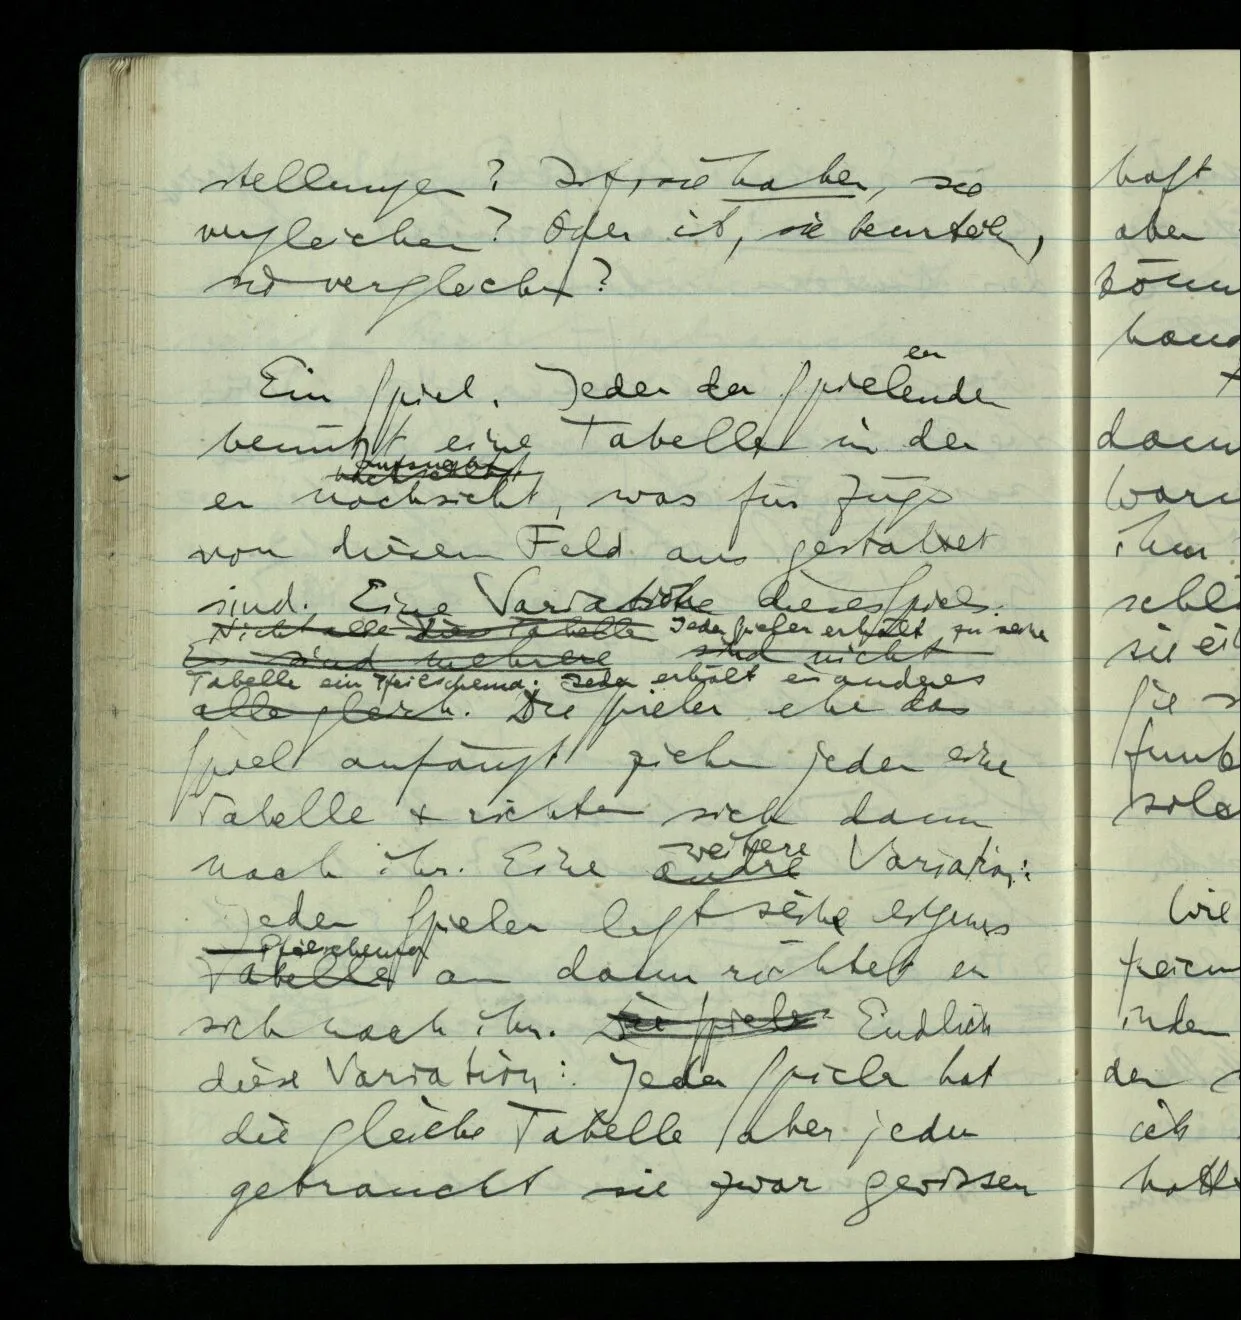 stellungen? Ist, sie haben, sie
vergleichen? Oder ist, sie beurteilen,
sie vergleichen?
er
Ein Spiel. Jeder der Spielenden
benützt eine Tabelle in der
er nachsieht, was für Züge
von diesem Feld aus gestattet
sind. Eine Variation dieses Spiels.
Nicht alle Tabelle Jeder Spieler erhält zu seiner
Es sind mehrere sind nicht
Tabelle ein Pfeilschema; Jeder erhält ein anderes
alle gleich. Die Spieler ehe das
Spiel anfängt ziehen jeder eine
Tabelle & richten sich dann
weitere
nach ihr. Eine andre Variation:
Jeder Spieler legt seine eigenes
Pfeilschema
Tabelle an dann richtet er
sich nach ihr. Die Spieler Endlich
diese Variation: Jeder Spieler hat
die gleiche Tabelle aber jeder
gebraucht sie zwar gewissen
haft
aber
könn
dann
waru
ihm
schl
sie
Wie
inden
der
ich
hatte